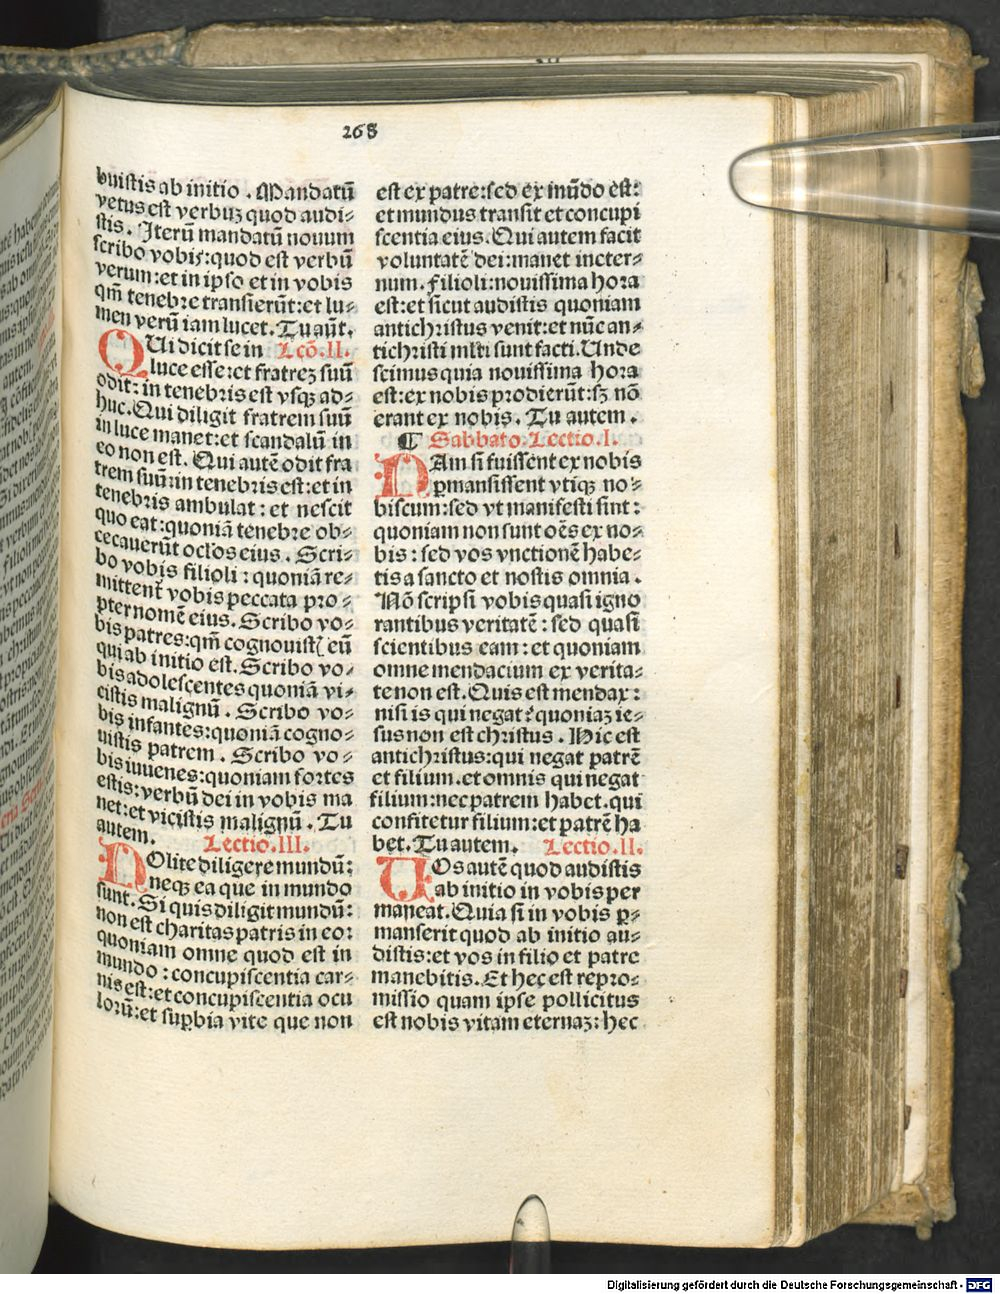 268
buistis ab initio . Mandatū
vetus est verbuꝫ quod audi⸗
stis . Iterū mandatū nouum
scribo vobis: quod est verbū
verum: et in ipso et in vobis
qm̄ tenebre transierūt: et lu⸗
men verū iam lucet. Tu aūt.
QUi dicit se in Lcō. II.
luce esse: et fratreꝫ suū
odit: in tenebris est vsqꝫ ad⸗
huc. Qui diligit fratrem suū
in luce manet: et scandalū in
eo non est. Qui autē odit fra
trem suū: in tenebris est: et in
tenebris ambulat: et nescit
quo eat: quoniā tenebre ob⸗
cecauerūt ocl'os eius . Scri⸗
bo vobis filioli : quoniā re⸗
mittent̄ vobis peccata pro⸗
pter nomē eius. Scribo vo⸗
bis patres: qm̄ cognouistꝭ eū
qui ab initio est. Scribo vo⸗
bis adolescentes quoniā vi⸗
cistis malignū . Scribo vo⸗
bis infantes: quoniā cogno⸗
uistis patrem . Scribo vo⸗
bis iuuenes: quoniam fortes
estis: verbū dei in vobis ma
net: et vicistis malignū . Tu
autem. Lectio. III.
NOlite diligere mundū:
neqꝫ ea que in mundo
sunt. Si quis diligit mundū:
non est charitas patris in eo:
quoniam omne quod est in
mundo : concupiscentia car⸗
nis est: et concupiscentia ocu
lorū: et suꝑbia vite que non
est ex patre: sed ex mūdo est:
et mundus transit et concupi
scentia eius. Qui autem facit
voluntatē dei: manet in eter⸗
num. filioli: nouissima hora
est: et sicut audistis quoniam
antichristus venit: et nūc an⸗
tichristi ml'ti sunt facti. Unde
scimus quia nouissima hora
est: ex nobis prodierūt: sꝫ nō
erant ex nobis . Tu autem .
¶ Sabbato. Lectio. I.
NAm si fuissent ex nobis
ꝑmansissent vtiqꝫ no⸗
biscum: sed vt manifesti sint :
quoniam non sunt oēs ex no⸗
bis : sed vos vnctionē habe⸗
tis a sancto et nostis omnia .
Nō scripsi vobis quasi igno
rantibus veritatē : sed quasi
scientibus eam : et quoniam
omne mendacium ex verita⸗
te non est. Quis est mendax :
nisi is qui negat: quoniaꝫ ie⸗
sus non est christus . Hic est
antichristus: qui negat patrē
et filium. et omnis qui negat
filium: nec patrem habet. qui
confitetur filium: et patrē ha
bet. Tu autem. Lectio. II.
UOs autē quod audistis
ab initio in vobis per
maneat. Quia si in vobis ꝑ⸗
manserit quod ab initio au⸗
distis: et vos in filio et patre
manebitis. Et hec est repro⸗
missio quam ipse pollicitus
est nobis vitam eternaꝫ: hec
Digitalisierung gefördert durch die Deutsche Forschungsgemeinschaft - DFG